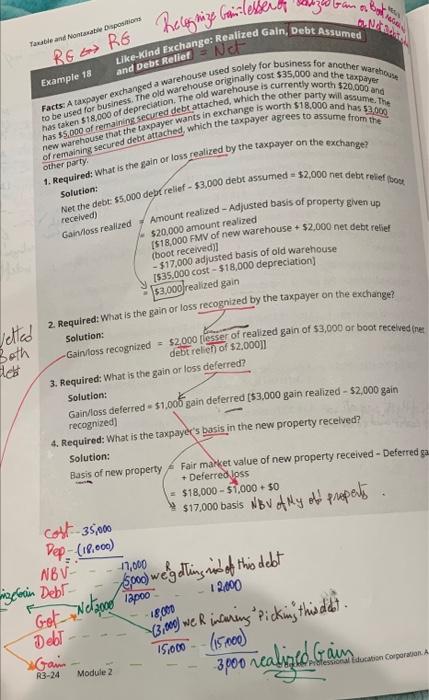 Taxable and Nontaxable Dispositions
Recognize Gain = lesser of realized Gain or Boot
RG ↔ RG
= Net
Example 18
Like-Kind Exchange: Realized Gain, Debt Assumed
and Debt Relief
Facts: A taxpayer exchanged a warehouse used solely for business for another warehouse
to be used for business. The old warehouse originally cost $35,000 and the taxpayer
has taken $18,000 of depreciation. The old warehouse is currently worth $20,000 and
has $5,000 of remaining secured debt attached, which the other party will assume. The
new warehouse that the taxpayer wants in exchange is worth $18,000 and has $3,000
of remaining secured debt attached, which the taxpayer agrees to assume from the
other party.
1. Required: What is the gain or loss realized by the taxpayer on the exchange?
Solution:
Net the debt: $5,000 debt relief - $3,000 debt assumed = $2,000 net debt relief (boot
received)
Gain/loss realized = Amount realized - Adjusted basis of property given up
= $20,000 amount realized
[$18,000 FMV of new warehouse + $2,000 net debt relief
(boot received)]
- $17,000 adjusted basis of old warehouse
[$35,000 cost - $18,000 depreciation]
= $3,000 realized gain
2. Required: What is the gain or loss recognized by the taxpayer on the exchange?
Solution:
Netted
Both
debt
Gain/loss recognized = $2,000 [lesser of realized gain of $3,000 or boot received (net
debt relief) of $2,000)]
3. Required: What is the gain or loss deferred?
Solution:
Gain/loss deferred = $1,000 gain deferred [$3,000 gain realized - $2,000 gain
recognized]
4. Required: What is the taxpayer's basis in the new property received?
Solution:
Basis of new property = Fair market value of new property received - Deferred ga
+ Deferred loss
= $18,000 - $1,000 + $0
= $17,000 basis NBV of My old property.
Cost - 35,000
Dep - (18,000)
NBV - 17,000
Debt (5000) we getting rid of this debt
12,000 - 12000
Got Net 2000 - 18,000
Debt (3,000) we R incuring "Picking" this debt.
15,000 (15,000)
Gain - 3,000 realized Gain
Professional Education Corporation. A
R3-24 Module 2